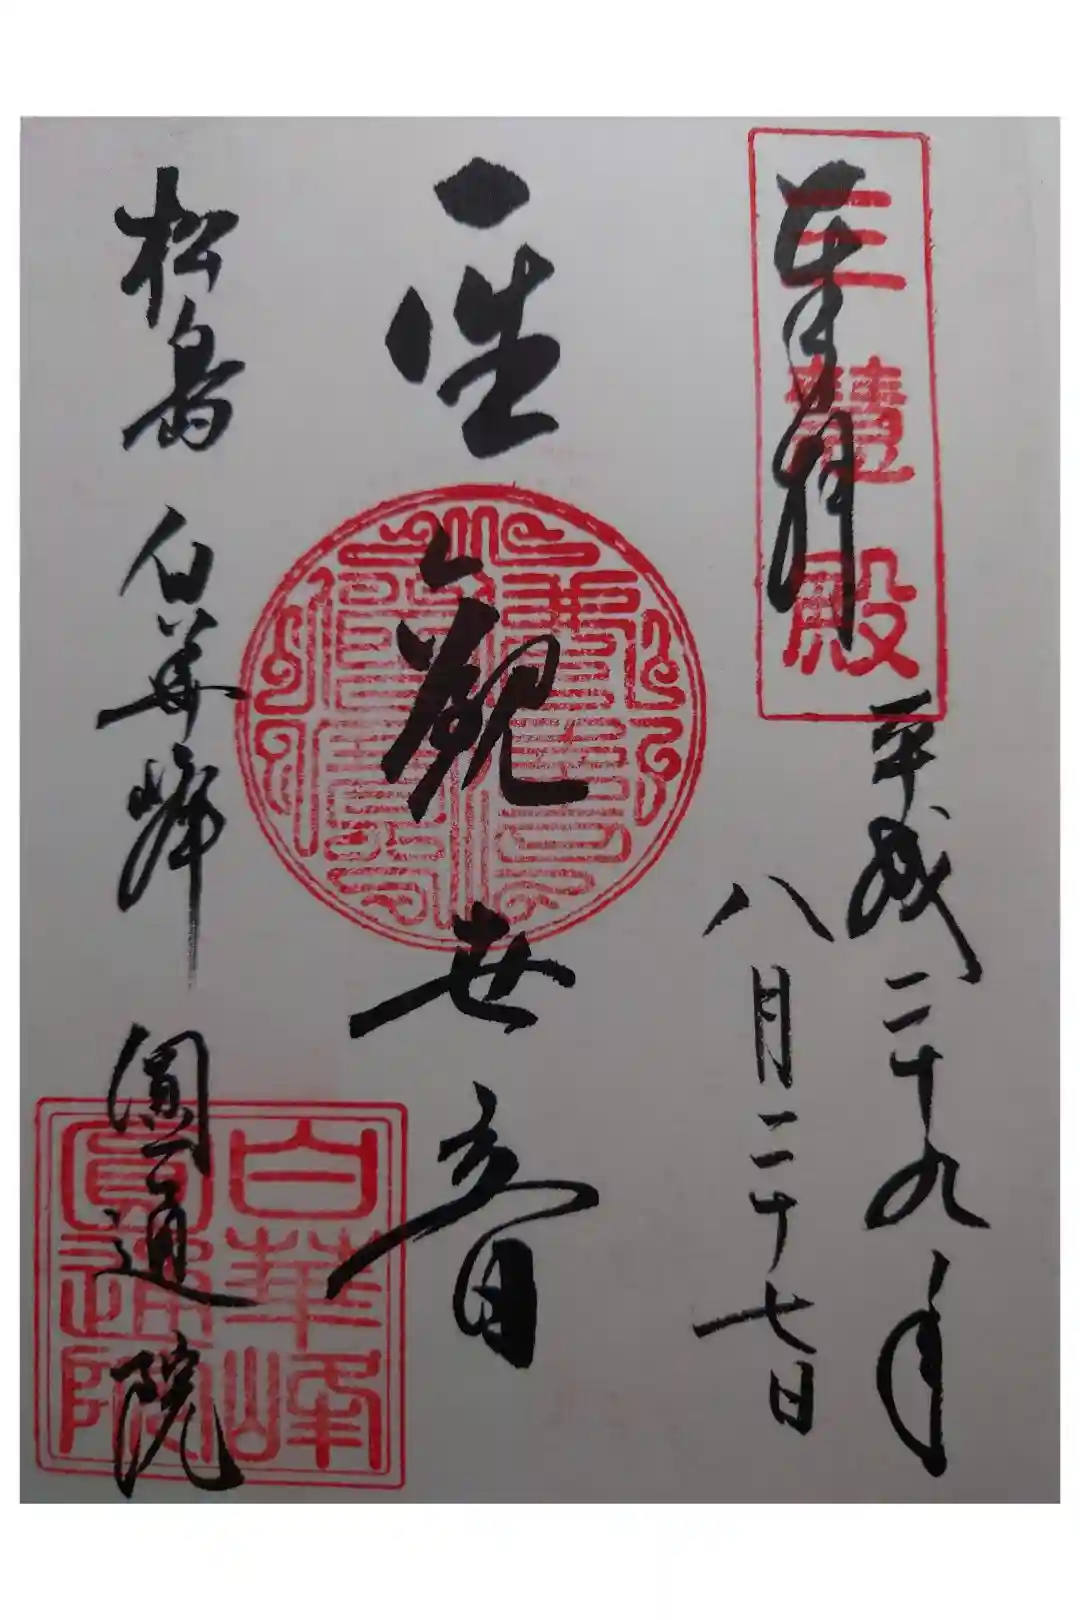 奉拝
三慧殿
平成二十九年
八月二十七日
聖觀世音
松島 白華峰 圓通院
白華峰
圓通院